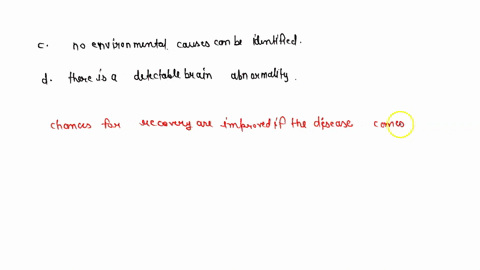 c. no environmental causes can be identified.
d. there is a detectable brain abnormality.
chances for recovery are improved if the disease comes